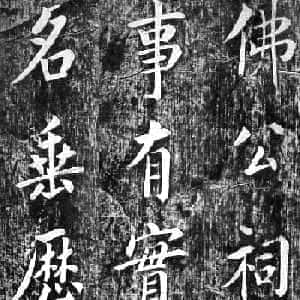 佛公祠
事有實
名垂歷